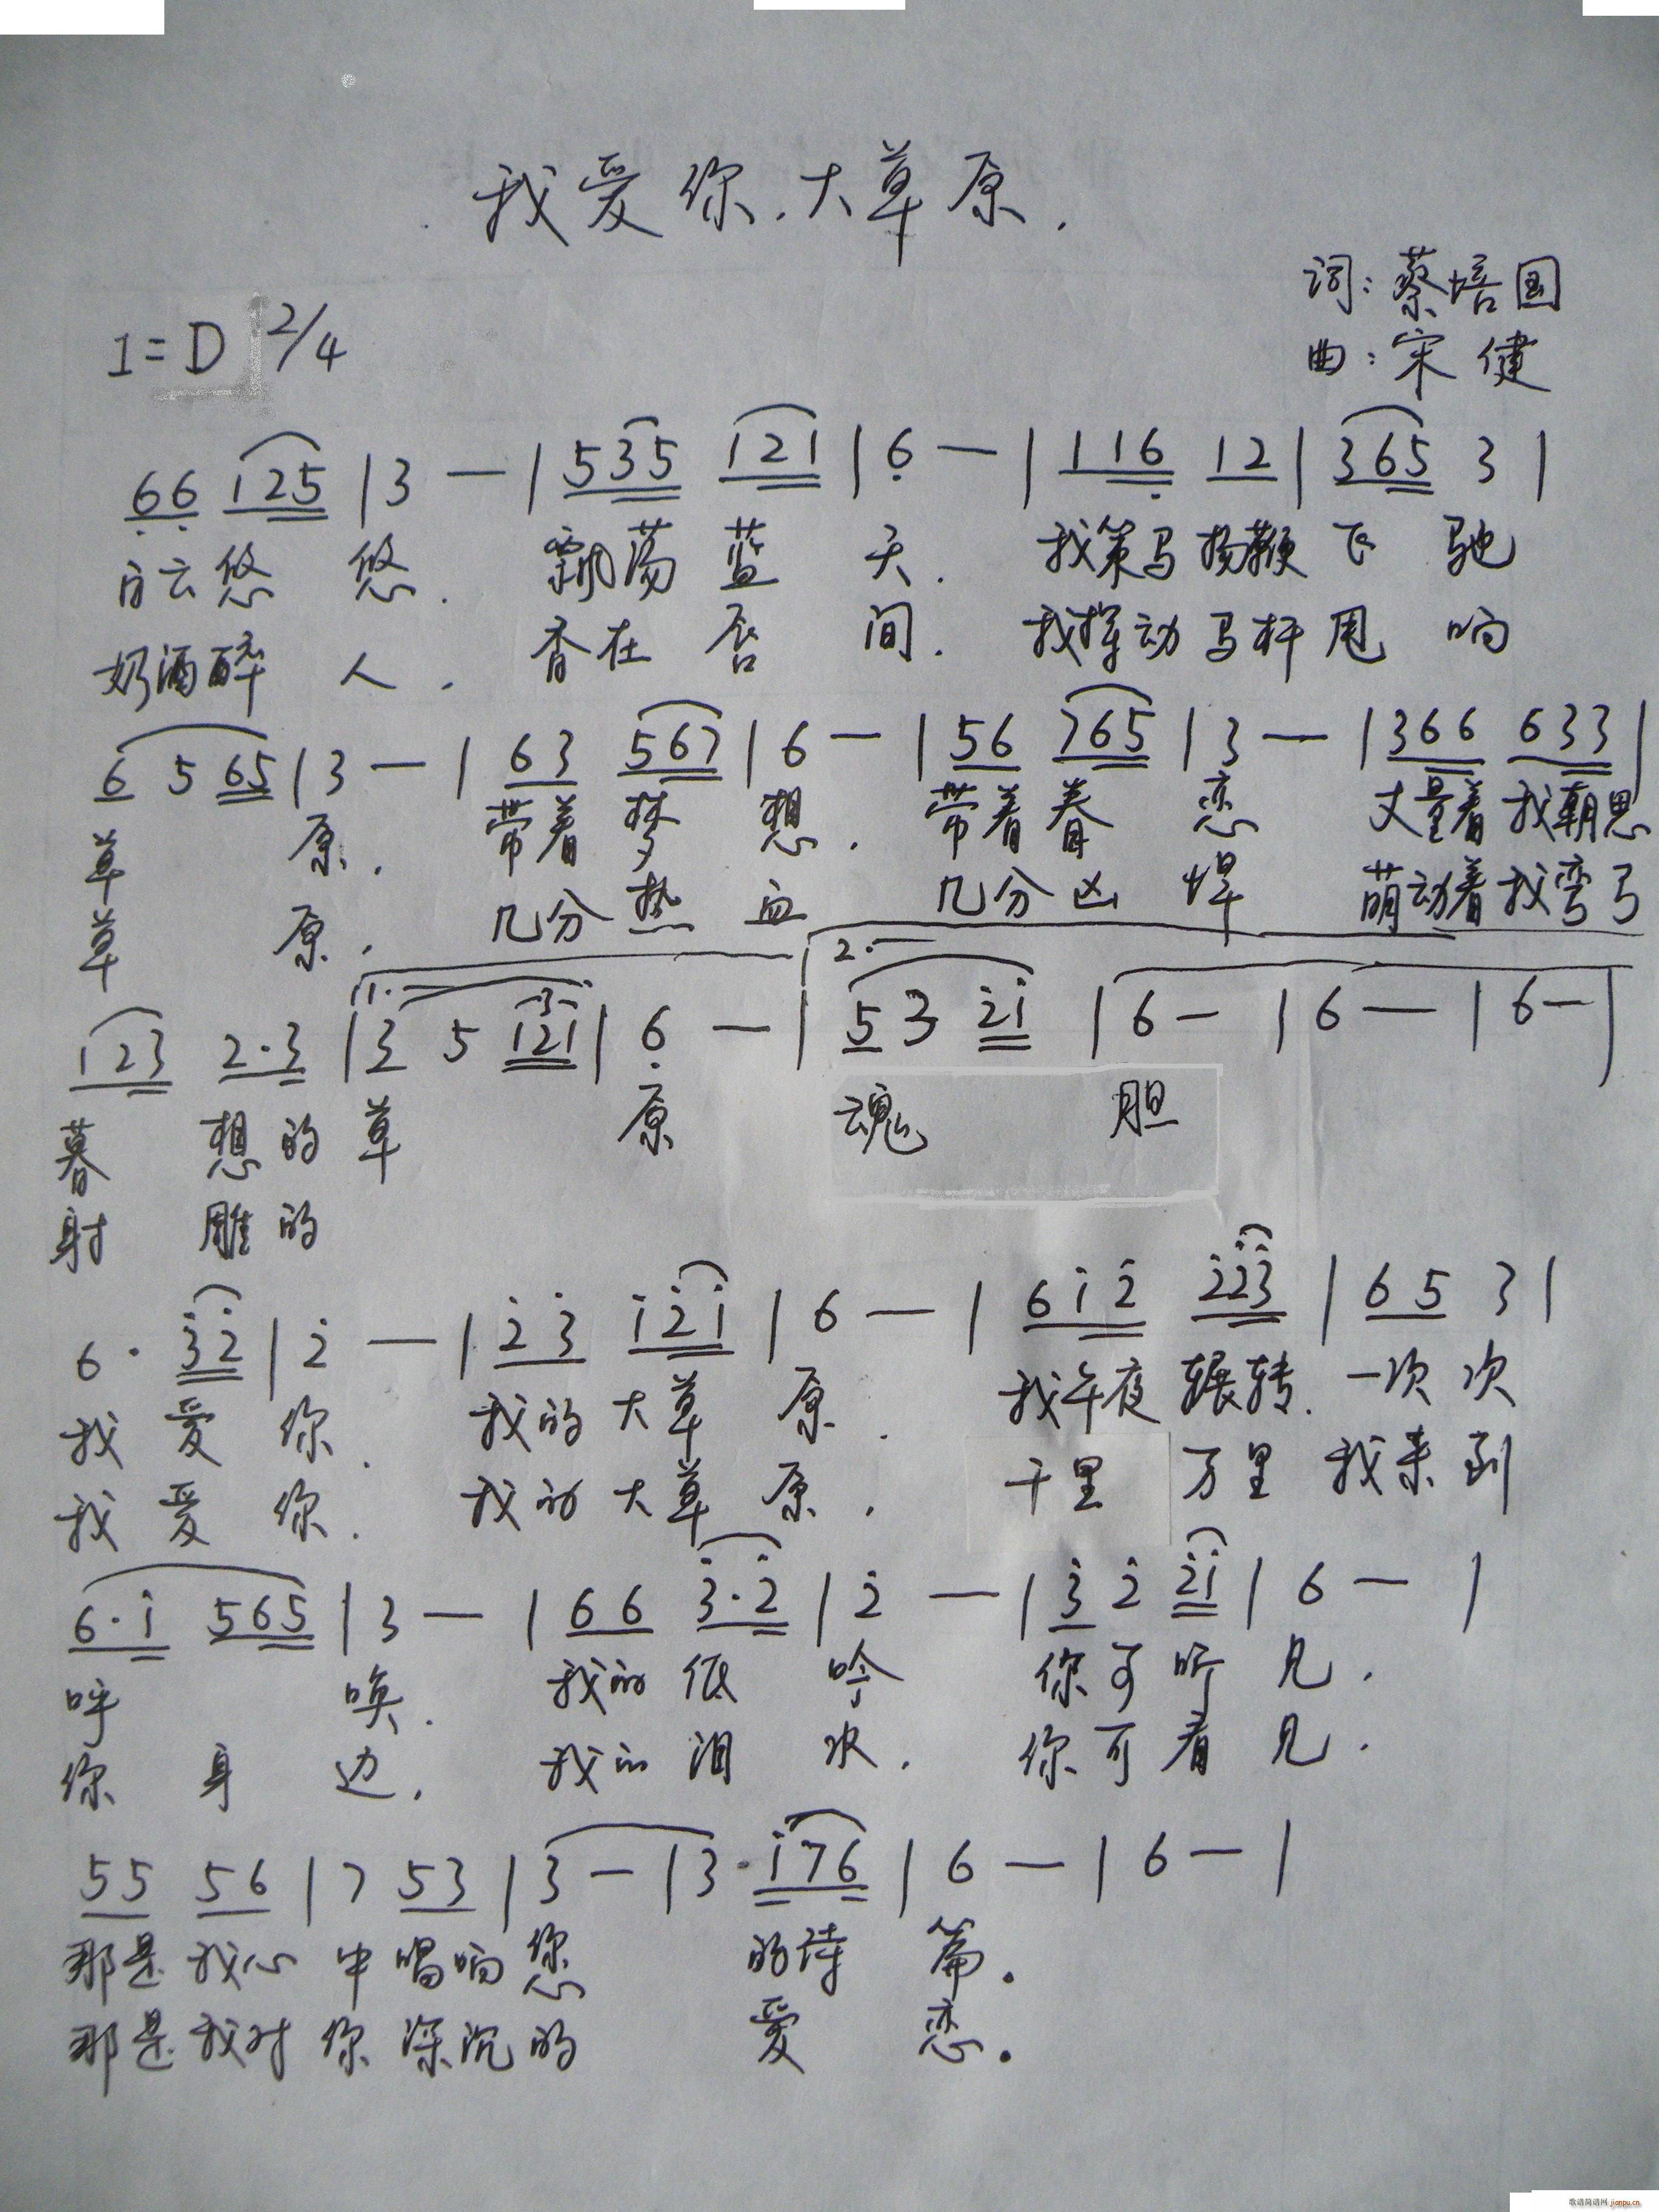 我爱你.大草原.
词:蔡培国
1=D 2/4
曲:宋健
66 125 | 3 — | 535 121 | 6 — | 116 12 | 365 3 |
白云悠 悠. 飘荡蓝 天. 我策马扬鞭飞 驰
奶酒醉 人. 香在唇 间. 我挥动马杆甩 响
6 5 65 | 3 — | 63 567 | 6 — | 56 765 | 3 — | 366 633 |
草 原. 带着梦 想. 带着眷 恋 丈量着我朝思
草 原. 几分热 血 几分凶 悍 萌动着我弯弓
1. 2.
123 2·3 | 3 5 121 | 6 — | 5 3 2̇1̇ | 6 — | 6 — | 6 — |
暮 想的草 原 魂 胆
射 雕的
6· 3̇2̇ | 2̇ — | 2̇3̇ 1̇2̇1̇ | 6 — | 61̇2̇ 2̇2̇3̇ | 65 3 |
我爱你. 我的大草原. 我午夜辗转.一次次
我爱你. 我的大草原. 千里 万里 我来到
6·1̇ 565 | 3 — | 66 3̇·2̇ | 2̇ — | 3̇ 2̇ 2̇1̇ | 6 — |
呼 唤. 我的低 吟 你可听见.
你身边. 我的泪 水. 你可看见.
55 56 | 7 53 | 3 — | 3· 1̇76 | 6 — | 6 — |
那是我心中唱响您 的诗 篇。
那是我对你深沉的 爱 恋。
歌谱简谱网 jianpu.cn